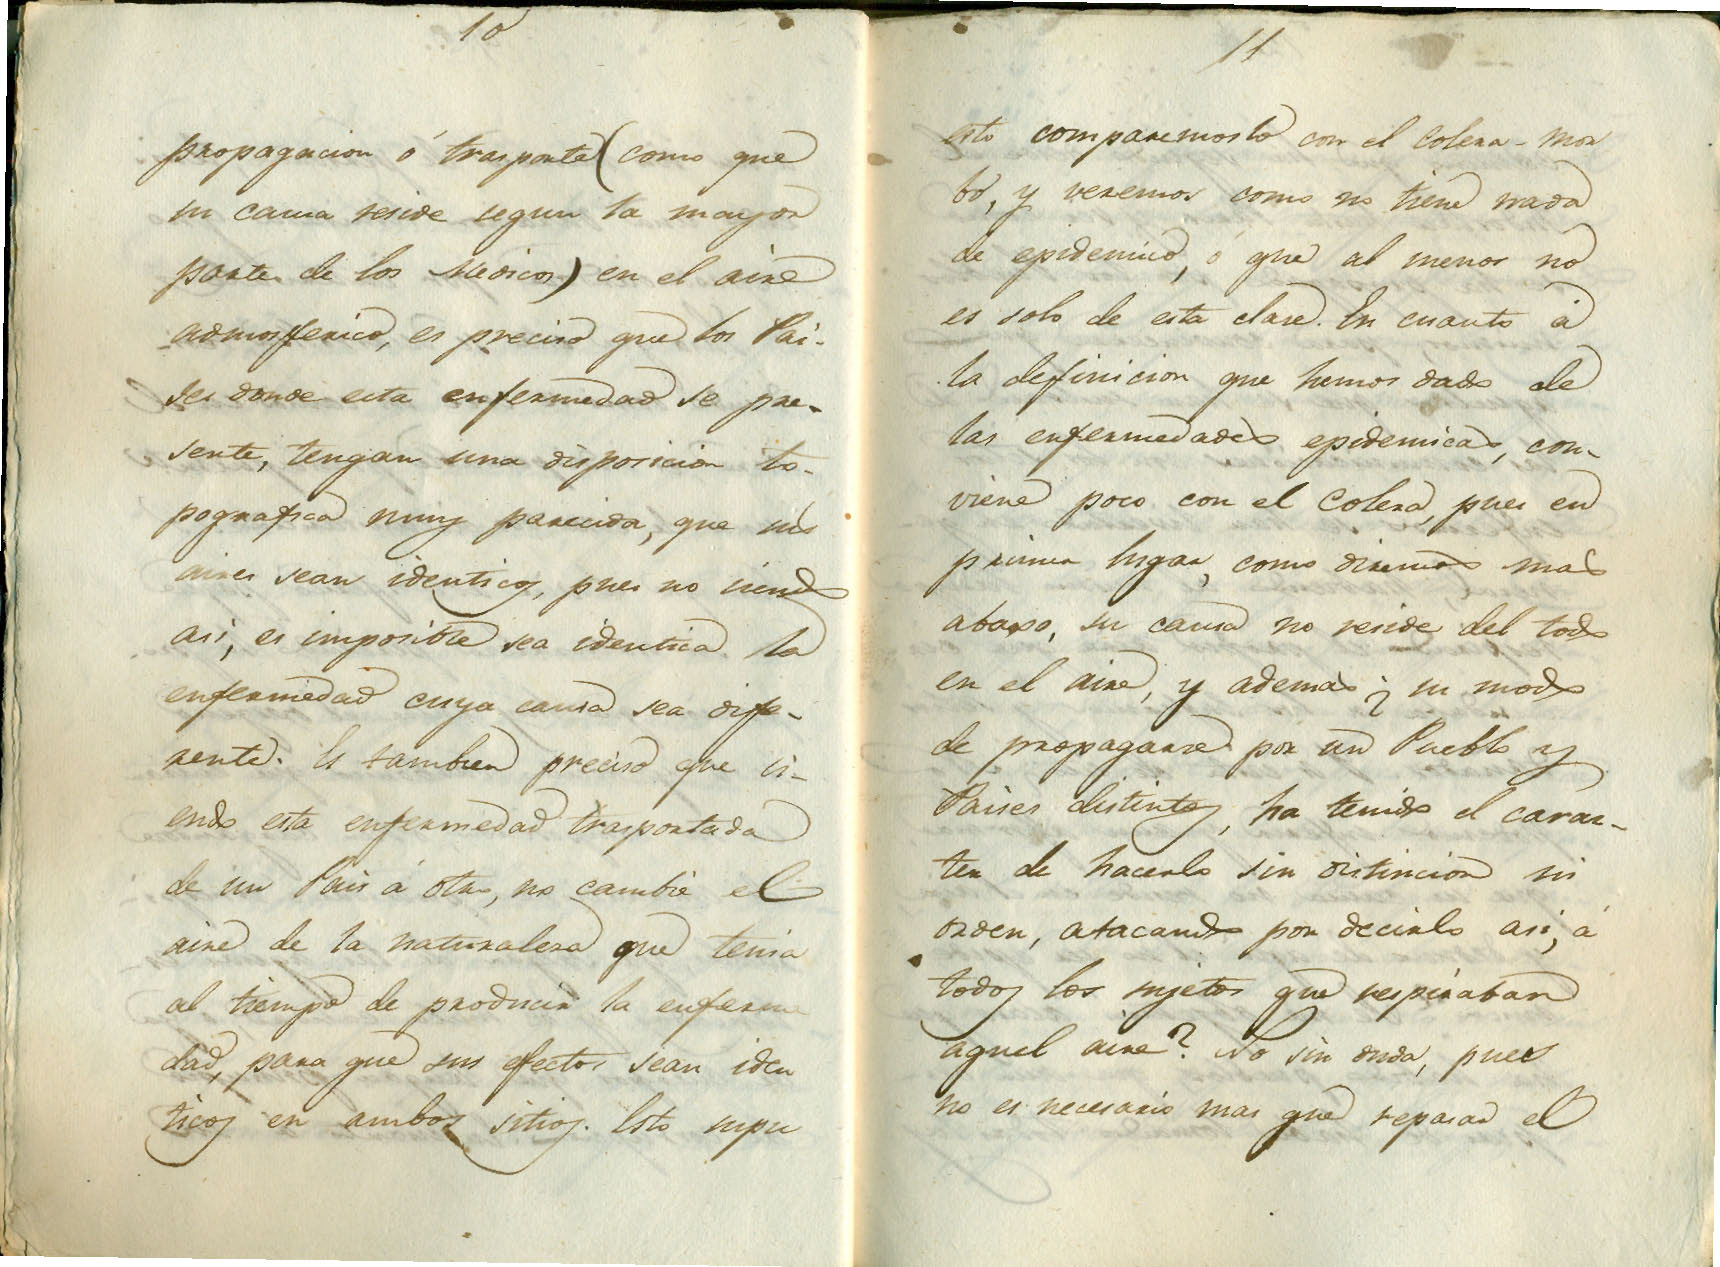 10
propagacion ó trasporte (como que
su causa reside segun la mayor
parte de los Medicos) en el aire
admosferico, es preciso que los Pai-
ses donde esta enfermedad se pre-
sente, tengan una disposicion to-
pografica muy parecida, que sus
aires sean identicos, pues no siendo
asi, es imposible sea identica la
enfermedad cuya causa sea dife-
rente. Es tambien preciso que si-
endo esta enfermedad trasportada
de un Pais á otro, no cambie el
aire de la naturalesa que tenia
al tiempo de producir la enferme
dad, para que sus efectos sean iden
ticos en ambos sitios. Esto supu
11
esto comparemoslo con el Colera-mor
bo, y veremos como no tiene nada
de epidemico, ó que al menos no
es solo de esta clase. En cuanto á
la definicion que hemos dado de
las enfermedades epidemicas, con-
viene poco con el Colera, pues en
primer lugar, como diremos mas
abaxo, su causa no reside del todo
en el aire, y además ¿su modo
de propagarse por un Pueblo y
Paises distintos, ha tenido el carac-
ter de hacerlo sin distincion ni
orden, atacando por decirlo asi, á
todos los sujetos que respiraban
aquel aire? No sin duda, pues
no es necesario mas que reparar el